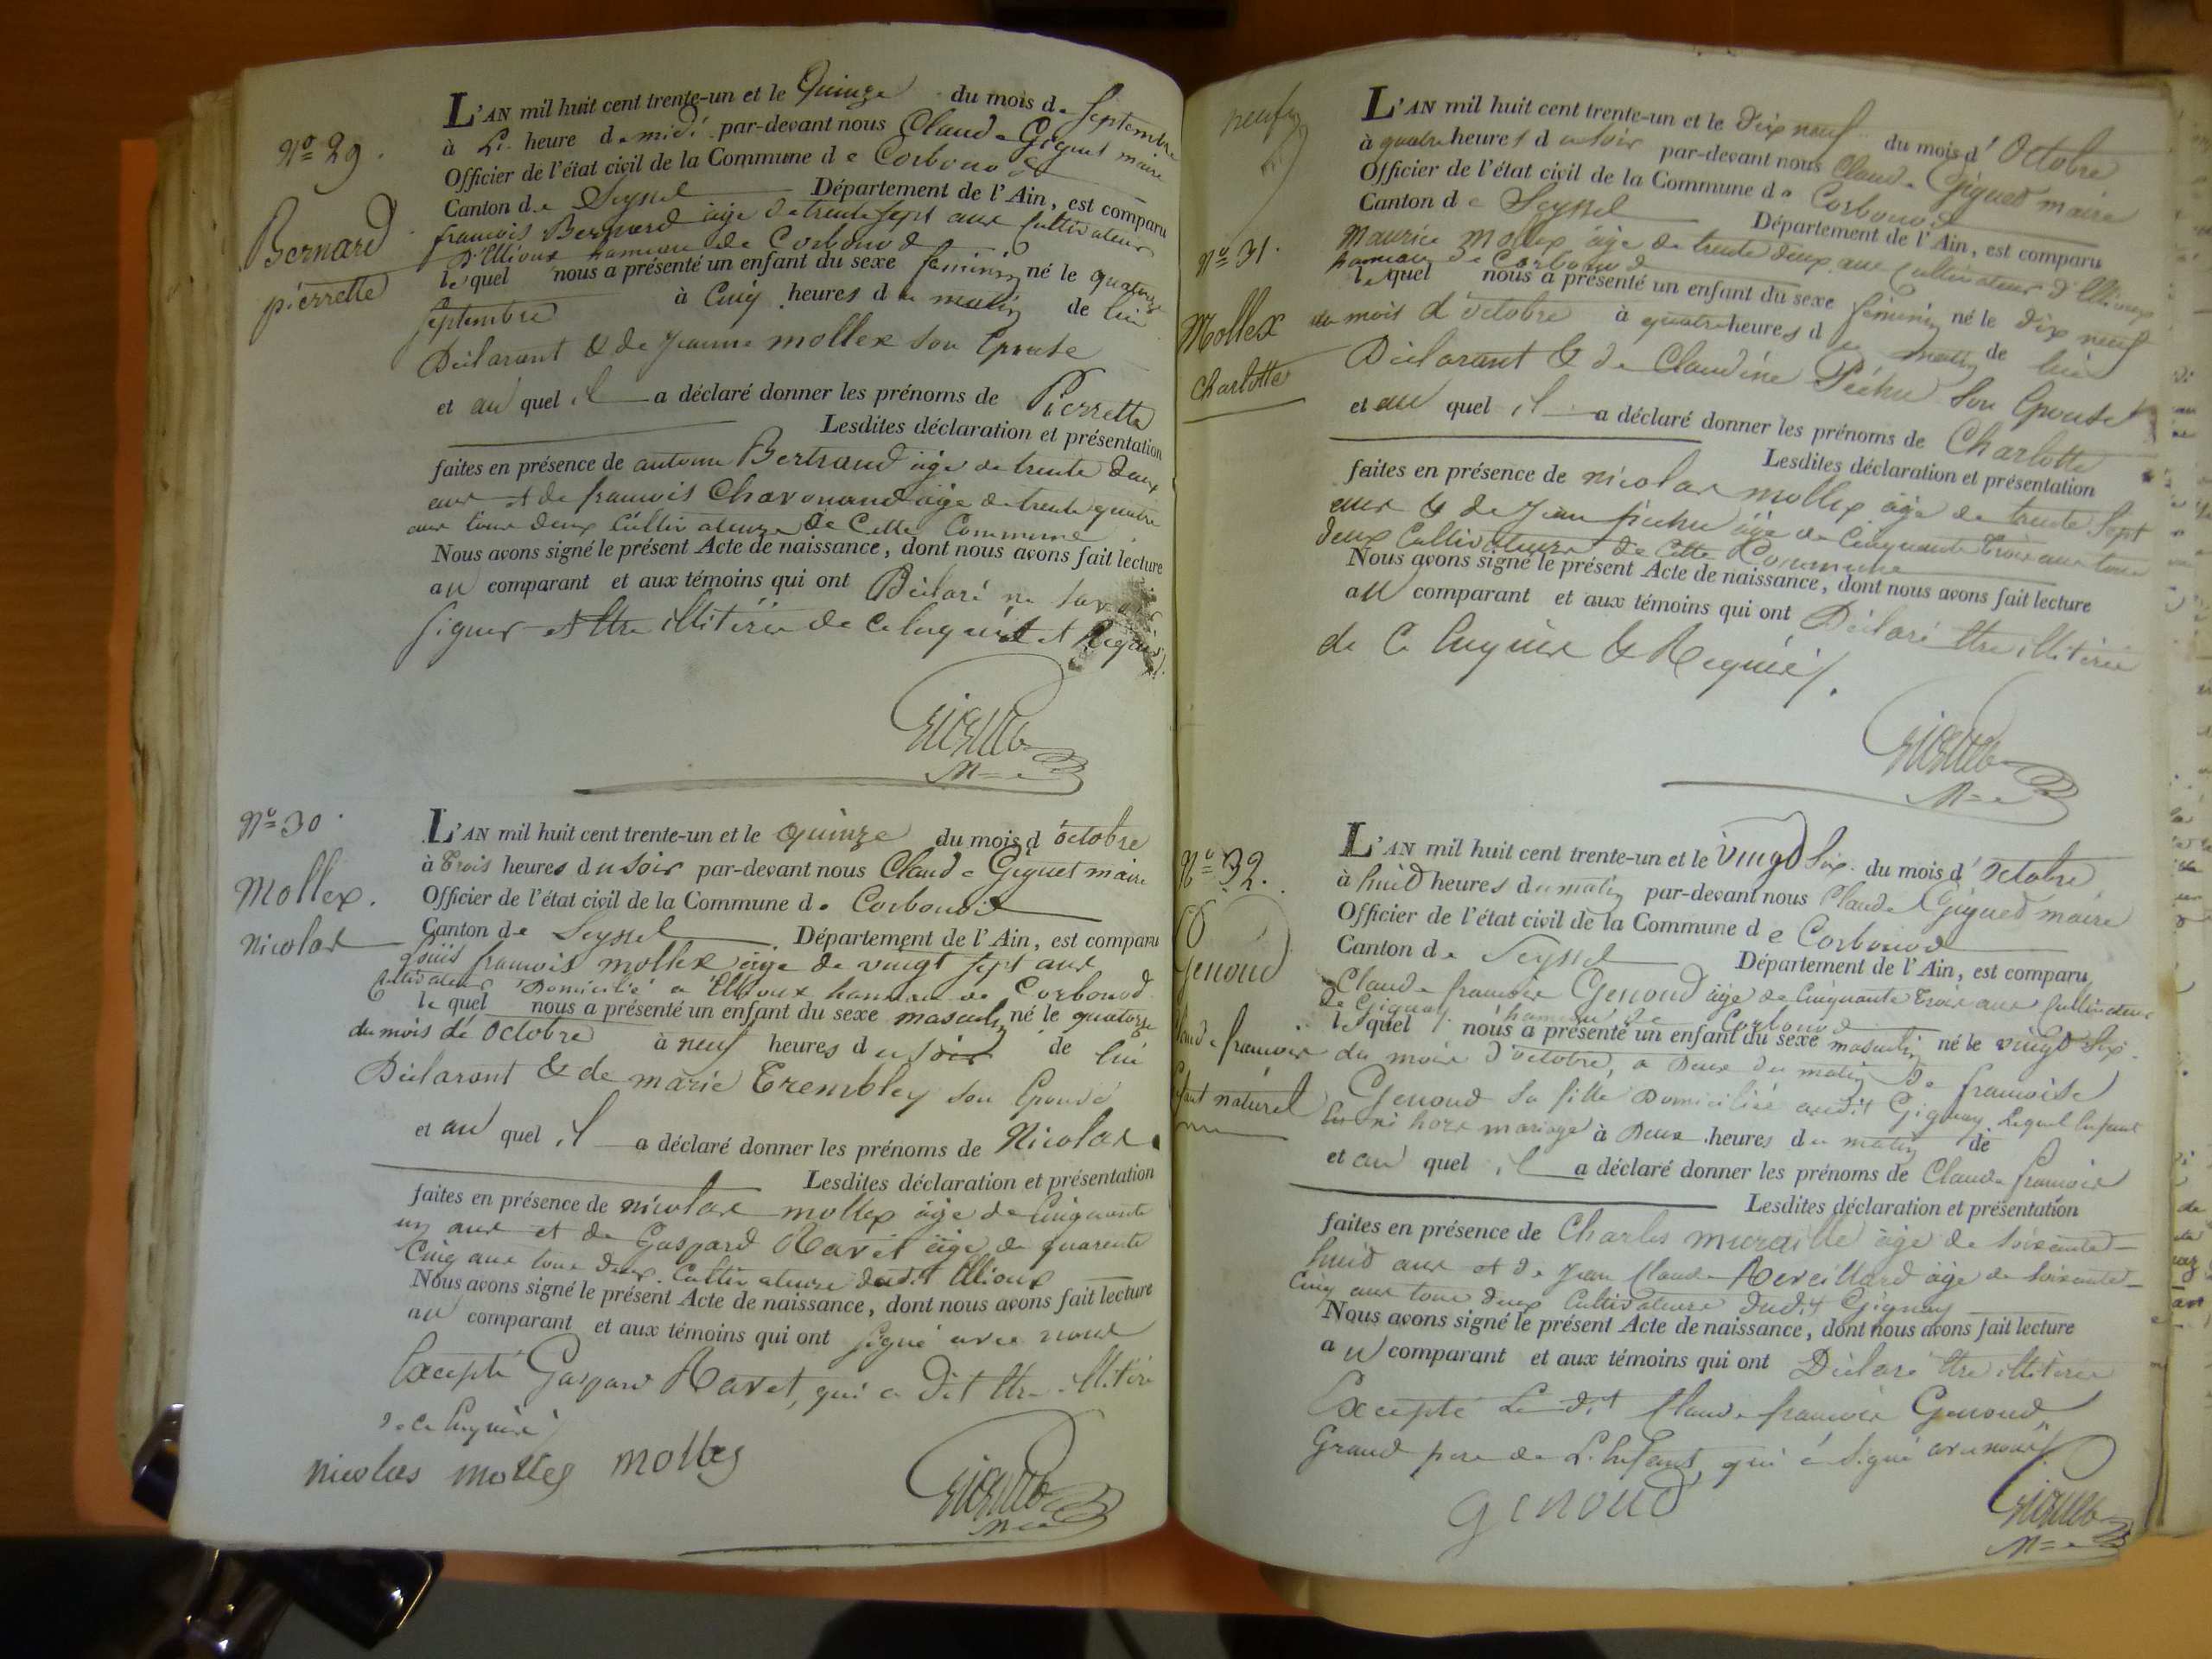 N° 29.
Bernard
pierrette
L'AN mil huit cent trente-un et le Quinze du mois de Septembre
à heure de midi par-devant nous Claude Giguet maire
Officier de l'état civil de la Commune de Corbonod
Canton de Seyssel Département de l'Ain, est comparu
francois Bernard âge de trente sept ans Cultivateur
D'Ellioux hameau de Corbonod
lequel nous a présenté un enfant du sexe feminin né le quatorze
Septembre à Cinq heures du matin de lui
Déclarant & de Jeanne mollex son Epouse
et au quel il a déclaré donner les prénoms de Pierrette
Lesdites déclaration et présentation
faites en présence de antoine Bertrand âge de trente deux
ans et de francois Charvonand âge de trente quatre
ans tous deux Cultivateurs de Cette Commune
Nous avons signé le présent Acte de naissance, dont nous avons fait lecture
au comparant et aux témoins qui ont Déclaré ne Savoir
signer et être illitéré de ce Enquis et Requis
N° 30.
Mollex.
nicolas
L'AN mil huit cent trente-un et le Quinze du mois d'octobre
à Trois heures du soir par-devant nous Claude Giguet maire
Officier de l'état civil de la Commune de Corbonod
Canton de Seyssel Département de l'Ain, est comparu
Louis francois mollex âge de vingt sept ans
Cultivateur Domicilié a Ellioux hameau de Corbonod
lequel nous a présenté un enfant du sexe masculin né le quatorze
du mois de Octobre à neuf heures du soir de lui
Déclarant & de marie Trembley son Epouse
et au quel il a déclaré donner les prénoms de Nicolas
Lesdites déclaration et présentation
faites en présence de nicolas mollex âge de Cinquante
un ans et de Gaspard Ravet âge de quarente
Cinq ans tous deux Cultivateurs dudit Ellioux
Nous avons signé le présent Acte de naissance, dont nous avons fait lecture
au comparant et aux témoins qui ont signé avec nous
Excepté Gaspard Ravet, qui a Dit être illitéré
de ce Enquis
nicolas mollex mollex
neuf
N° 31.
Mollex
Charlotte
L'AN mil huit cent trente-un et le Dix neuf du mois d'Octobre
à quatre heures du soir par-devant nous Claude Giguet maire
Officier de l'état civil de la Commune de Corbonod
Canton de Seyssel Département de l'Ain, est comparu
Maurice Mollex âge de trente deux ans Cultivateur d'Ellioux
hameau de Corbonod
lequel nous a présenté un enfant du sexe féminin né le Dix neuf
du mois d'octobre à quatre heures du matin de lui
Déclarant & de Claudine Péchu son Epouse
et au quel il a déclaré donner les prénoms de Charlotte
Lesdites déclaration et présentation
faites en présence de nicolas mollex âge de trente Sept
ans & de Jean péchu âge de Cinquante Trois ans tous
deux Cultivateurs de Cette Commune
Nous avons signé le présent Acte de naissance, dont nous avons fait lecture
au comparant et aux témoins qui ont Déclaré être illitéré
de Ce Enquis & Requis
N° 32.
Genoud
Claude francois
Enfant naturel
L'AN mil huit cent trente-un et le vingt Six du mois d'Octobre
à huit heures du matin par-devant nous Claude Giguet maire
Officier de l'état civil de la Commune de Corbonod
Canton de Seyssel Département de l'Ain, est comparu
Claude francois Genoud âge de Cinquante Trois ans Cultivateur
de Gignay hameau de Corbonod
lequel nous a présenté un enfant du sexe masculin né le vingt Six
du mois d'octobre, a Deux du matin de francoise
Genoud sa fille Domiciliée audit Gignay Lequel Enfant
Est né hors mariage à Deux heures du matin de
et au quel il a déclaré donner les prénoms de Claude francois
Lesdites déclaration et présentation
faites en présence de Charles muraille âge de Soixante
huit ans et de Jean Claude Reveillard âge de Soixante
Cinq ans tous deux Cultivateurs dudit Gignay
Nous avons signé le présent Acte de naissance, dont nous avons fait lecture
au comparant et aux témoins qui ont Déclaré être illitéré
Excepté Le dit Claude francois Genoud
Grand pere de L'Enfant, qui a Signé avec nous
genoud